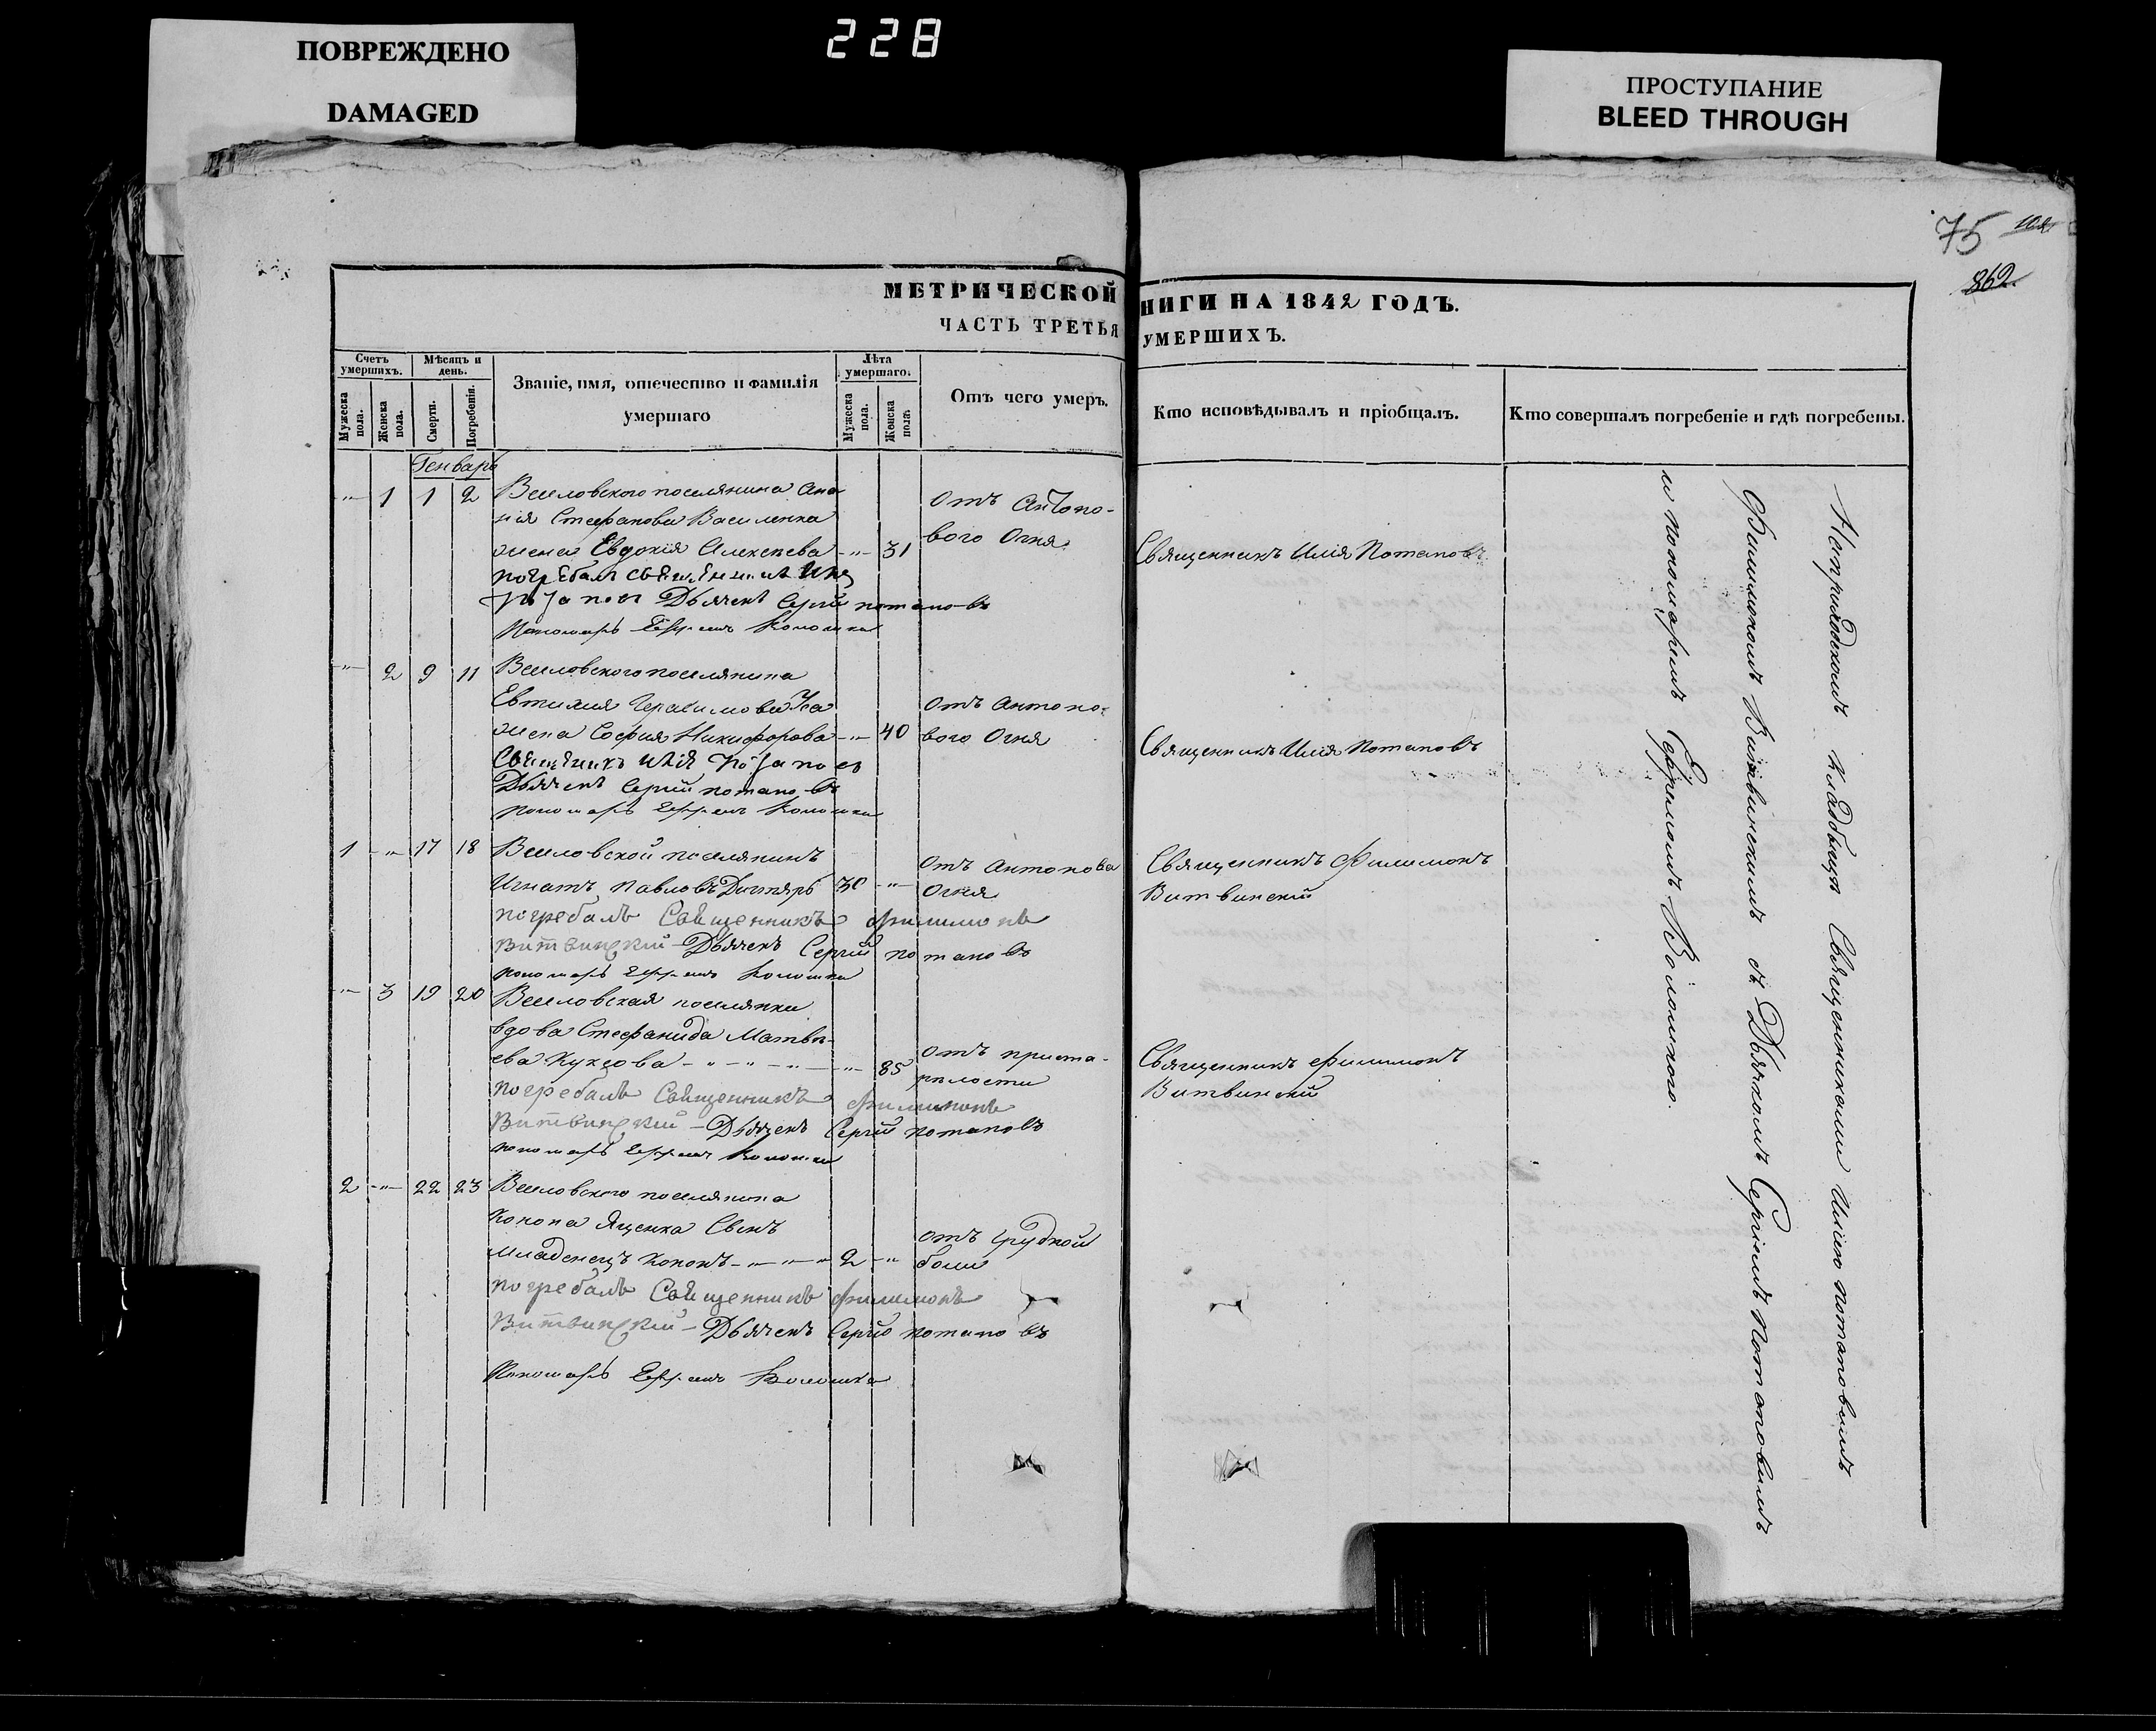 228
ПОВРЕЖДЕНО
DAMAGED
ПРОСТУПАНИЕ
BLEED THROUGH
75
862
МЕТРИЧЕСКОЙ
НИГИ НА 1842 ГОДЪ.
ЧАСТЬ ТРЕТЬЯ
УМЕРШИХЪ.
Счетъ умершихъ.
Мѣсяцъ и день.
Званіе, имя, отечество и фамилія
умершаго
Лѣта умершаго.
Отъ чего умеръ.
Кто исповѣдывалъ и пріобщалъ.
Кто совершалъ погребеніе и гдѣ погребены.
Мужеска пола.
Женска пола.
Смерти.
Погребенія.
Мужеска пола.
Женска пола.
Генварь
1 1 2 поселянина Ана
нія Стефанова Василенка
жена Евдокія Алексѣева 31
Отъ Антоно-
вого Огня
Священникъ Илія Потаповъ
Дьячекъ Сергій потаповъ
Пономарь Ефремъ
2 9 11 поселянина
Евтихія Герасимова
жена Софія Никифорова 40
отъ антоно-
вого Огня
Священникъ Илія Потаповъ
Священикъ илія
Дьячекъ Сергій потаповъ
пономарь Ефремъ
1 17 18 поселянинъ
Игнатъ Павловъ Дигтярь 30
отъ антонова
Огня
Священникъ Филимонъ
Витвинскій
погребалъ Священникъ филимонъ
витвинскій Дьячекъ Сергій потаповъ
пономарь Ефремъ
3 19 20 поселянка
вдова Стефанида Матвѣ-
ева 85
отъ преста-
рѣлости
Священникъ Филимонъ
Витвинскій
погребалъ Священникъ филимонъ
Витвинскій Дьячекъ Сергій потаповъ
пономарь Ефремъ
2 22 23 поселянина
Конона Яценка Сынъ
младенецъ Кононъ 2
отъ грудной
боли
погребалъ Священникъ филимонъ
Витвинскій Дьячекъ Сергій потаповъ
Пономарь Ефремъ
На приходскомъ кладбищѣ Священниками Иліею Потаповымъ
Филимономъ Витвинскимъ съ Дьячкомъ Сергіемъ Потаповымъ
и пономаремъ Ефремомъ